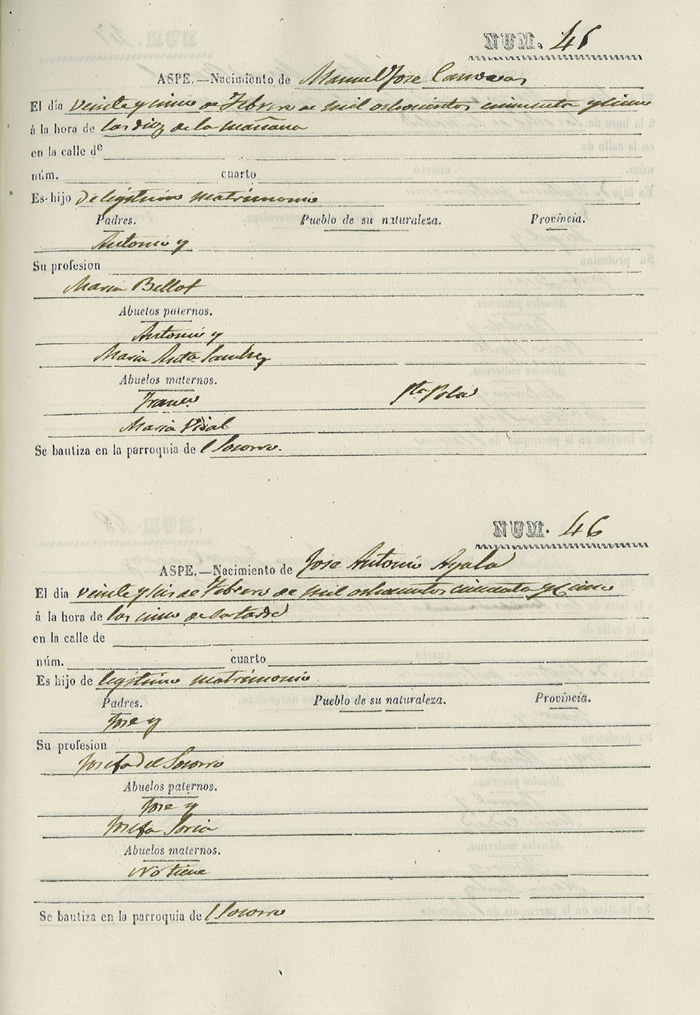 NUM. 45
ASPE.—Nacimiento de Manuel Jose Canovas
El día veinte y cinco de Febrero de mil ochocientos cincuenta y cinco
á la hora de las diez de la mañana
en la calle de
núm. cuarto
Es hijo de legitimo matrimonio
Padres. Pueblo de su naturaleza. Provincia.
Antonio y
Su profesion
Maria Bellot
Abuelos paternos.
Antonio y
Maria Anta Sanchez
Abuelos maternos.
Franco Sta Pola
Maria Vidal
Se bautiza en la parroquia de l Socorro.
NUM. 46
ASPE.—Nacimiento de Jose Antonio Ayala
El día veinte y seis de Febrero de mil ochocientos cincuenta y cinco
á la hora de las cinco de la tarde
en la calle de
núm. cuarto
Es hijo de legitimo matrimonio
Padres. Pueblo de su naturaleza. Provincia.
Jose y
Su profesion
Josefa del Socorro
Abuelos paternos.
Jose y
Josefa Soria
Abuelos maternos.
No tiene
Se bautiza en la parroquia de l Socorro